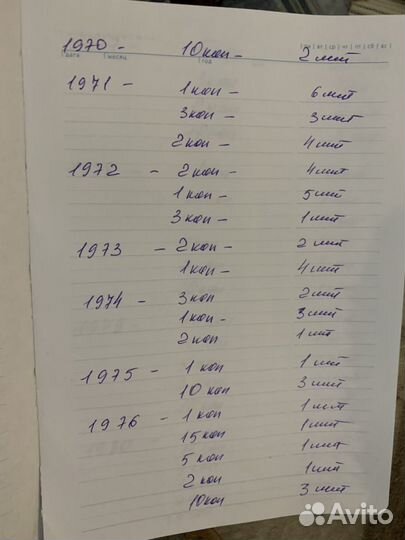 1970 - 10 коп - 2 шт
дата месяц год пн вт ср чт пт сб вс
1971 - 1 коп - 6 шт
3 коп - 3 шт
2 коп 4 шт
1972 - 2 коп - 4 шт
1 коп - 5 шт
3 коп - 1 шт
1973 - 2 коп - 2 шт
1 коп - 4 шт
1974 - 3 коп 2 шт
1 коп - 3 шт
2 коп 1 шт
1975 - 1 коп 1 шт
10 коп 3 шт
1976 - 1 коп 1 шт
15 коп 1 шт
5 коп 1 шт
2 коп 1 шт
10 коп 3 шт
Avito